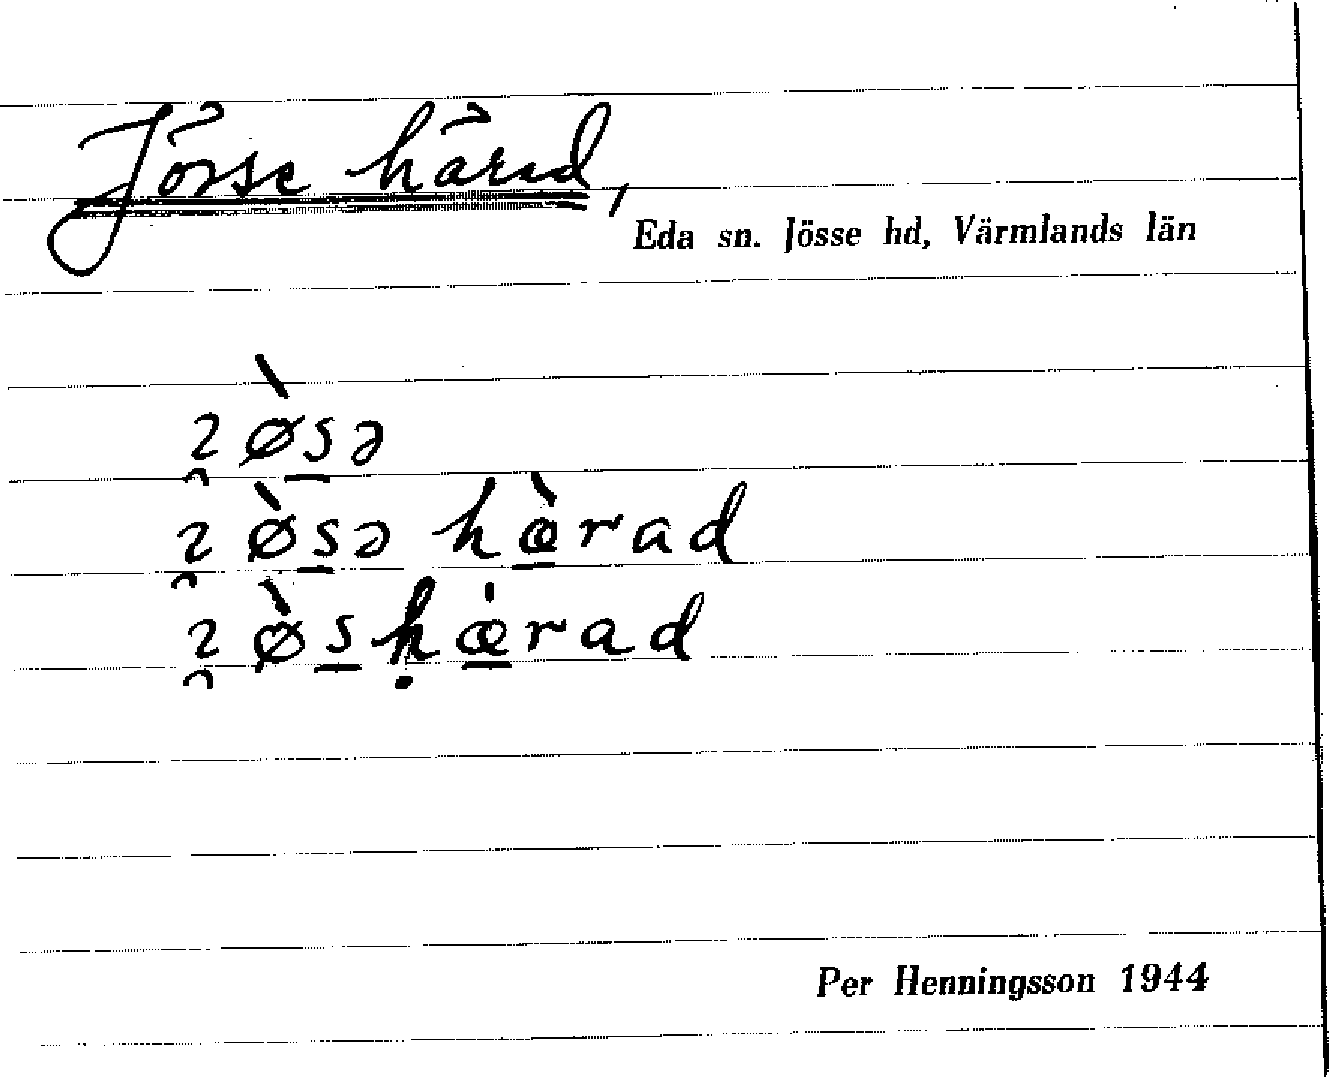 Jösse härad,
Eda sn. Jösse hd, Värmlands län
ɂ̯ø̀s̲ə
ɂ̯ø̀s̲ə hæ̲̀rad
ɂ̯ø̀s̲ḥæ̲̍rad
Per Henningsson 1944